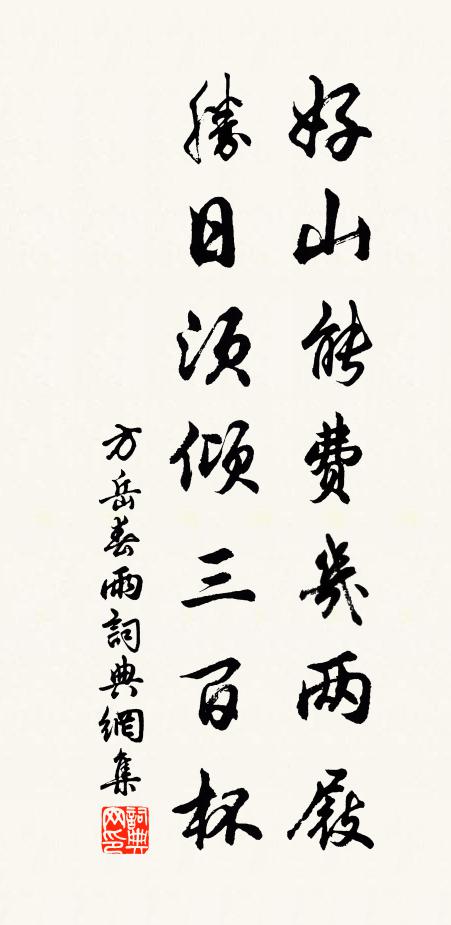 好山能费几两屐
胜日须倾三百杯
方岳春雨詞典網集
詞典网印